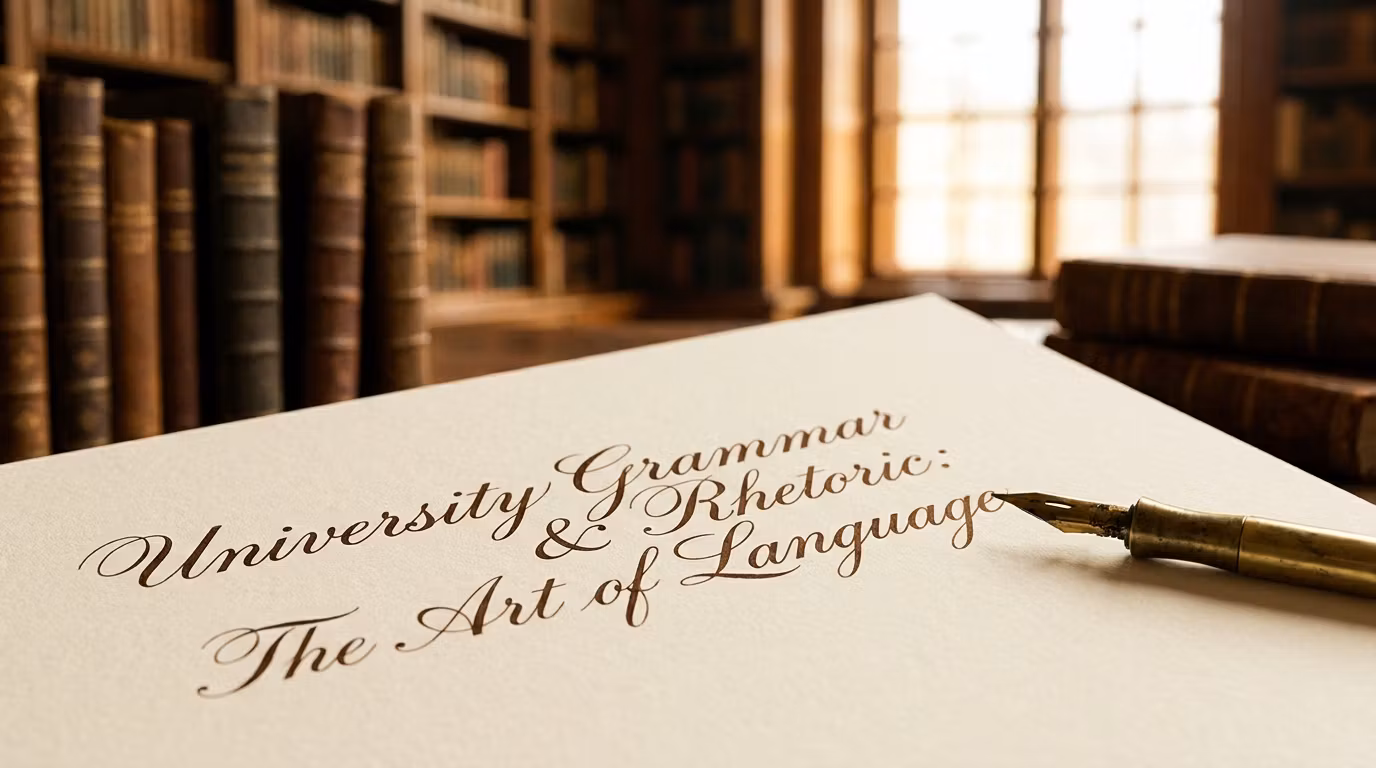 University Grammar
& Rhetoric:
The Art of Language